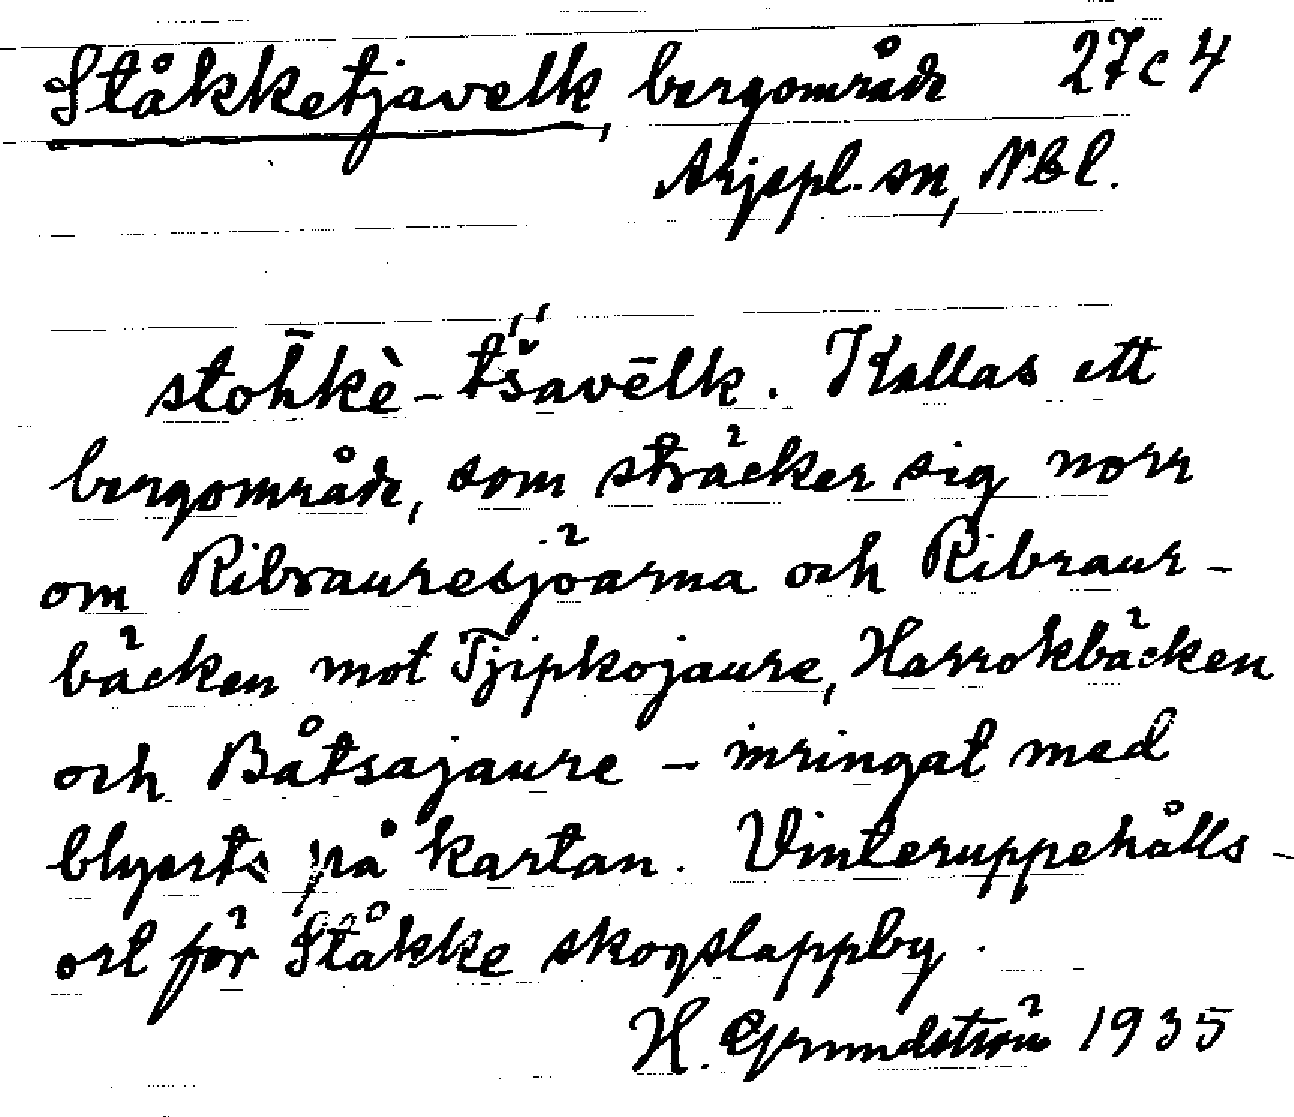 Ståkketjavelk, bergområde 27c4
Arjepl. sn, Nbl.
stoh̄kè-tšavēlk. Kallas ett
bergområde, som sträcker sig norr
om Ribrauresjöarna och Ribraur-
bäcken mot Tjipkojaure, Harrokbäcken
och Båtsajaure – inringat med
blyerts på kartan. Vinteruppehålls-
ort för Ståkke skogslappby.
H. Grundström 1935